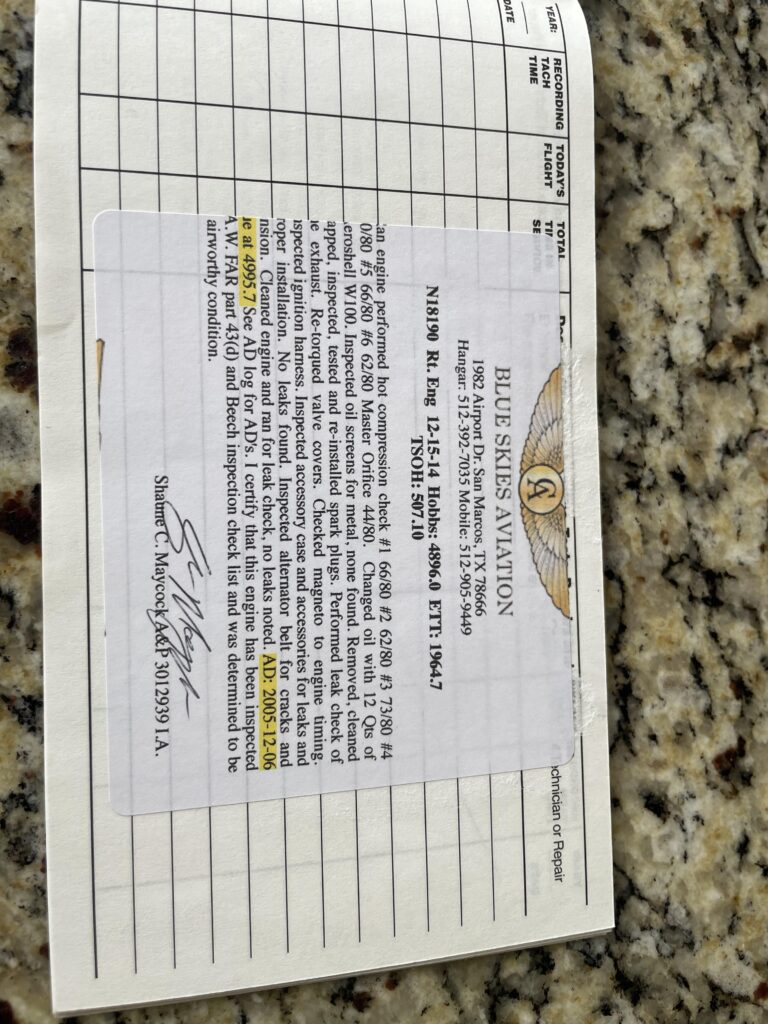 YEAR:
DATE
RECORDING
TACH
TIME
TODAY'S
FLIGHT
TOTAL
echnician or Repair
CA
BLUE SKIES AVIATION
1982 Airport Dr. San Marcos, TX 78666
Hangar: 512-392-7035 Mobile: 512-905-9449
N18190 Rt. Eng 12-15-14 Hobbs: 4896.0 ETT: 1964.7
TSOH: 507.10
an engine performed hot compression check #1 66/80 #2 62/80 #3 73/80 #4
0/80 #5 66/80 #6 62/80 Master Orifice 44/80. Changed oil with 12 Qts of
eroshell W100. Inspected oil screens for metal, none found. Removed, cleaned
apped, inspected, tested and re-installed spark plugs. Performed leak check of
e exhaust. Re-torqued valve covers. Checked magneto to engine timing.
nspected ignition harness. Inspected accessory case and accessories for leaks and
roper installation. No leaks found. Inspected alternator belt for cracks and
nsion. Cleaned engine and ran for leak check, no leaks noted. AD: 2005-12-06
ue at 4995.7 See AD log for AD's. I certify that this engine has been inspected
A.W. FAR part 43(d) and Beech inspection check list and was determined to be
airworthy condition.
Shaune C. Maycock A&P 3012939 I.A.